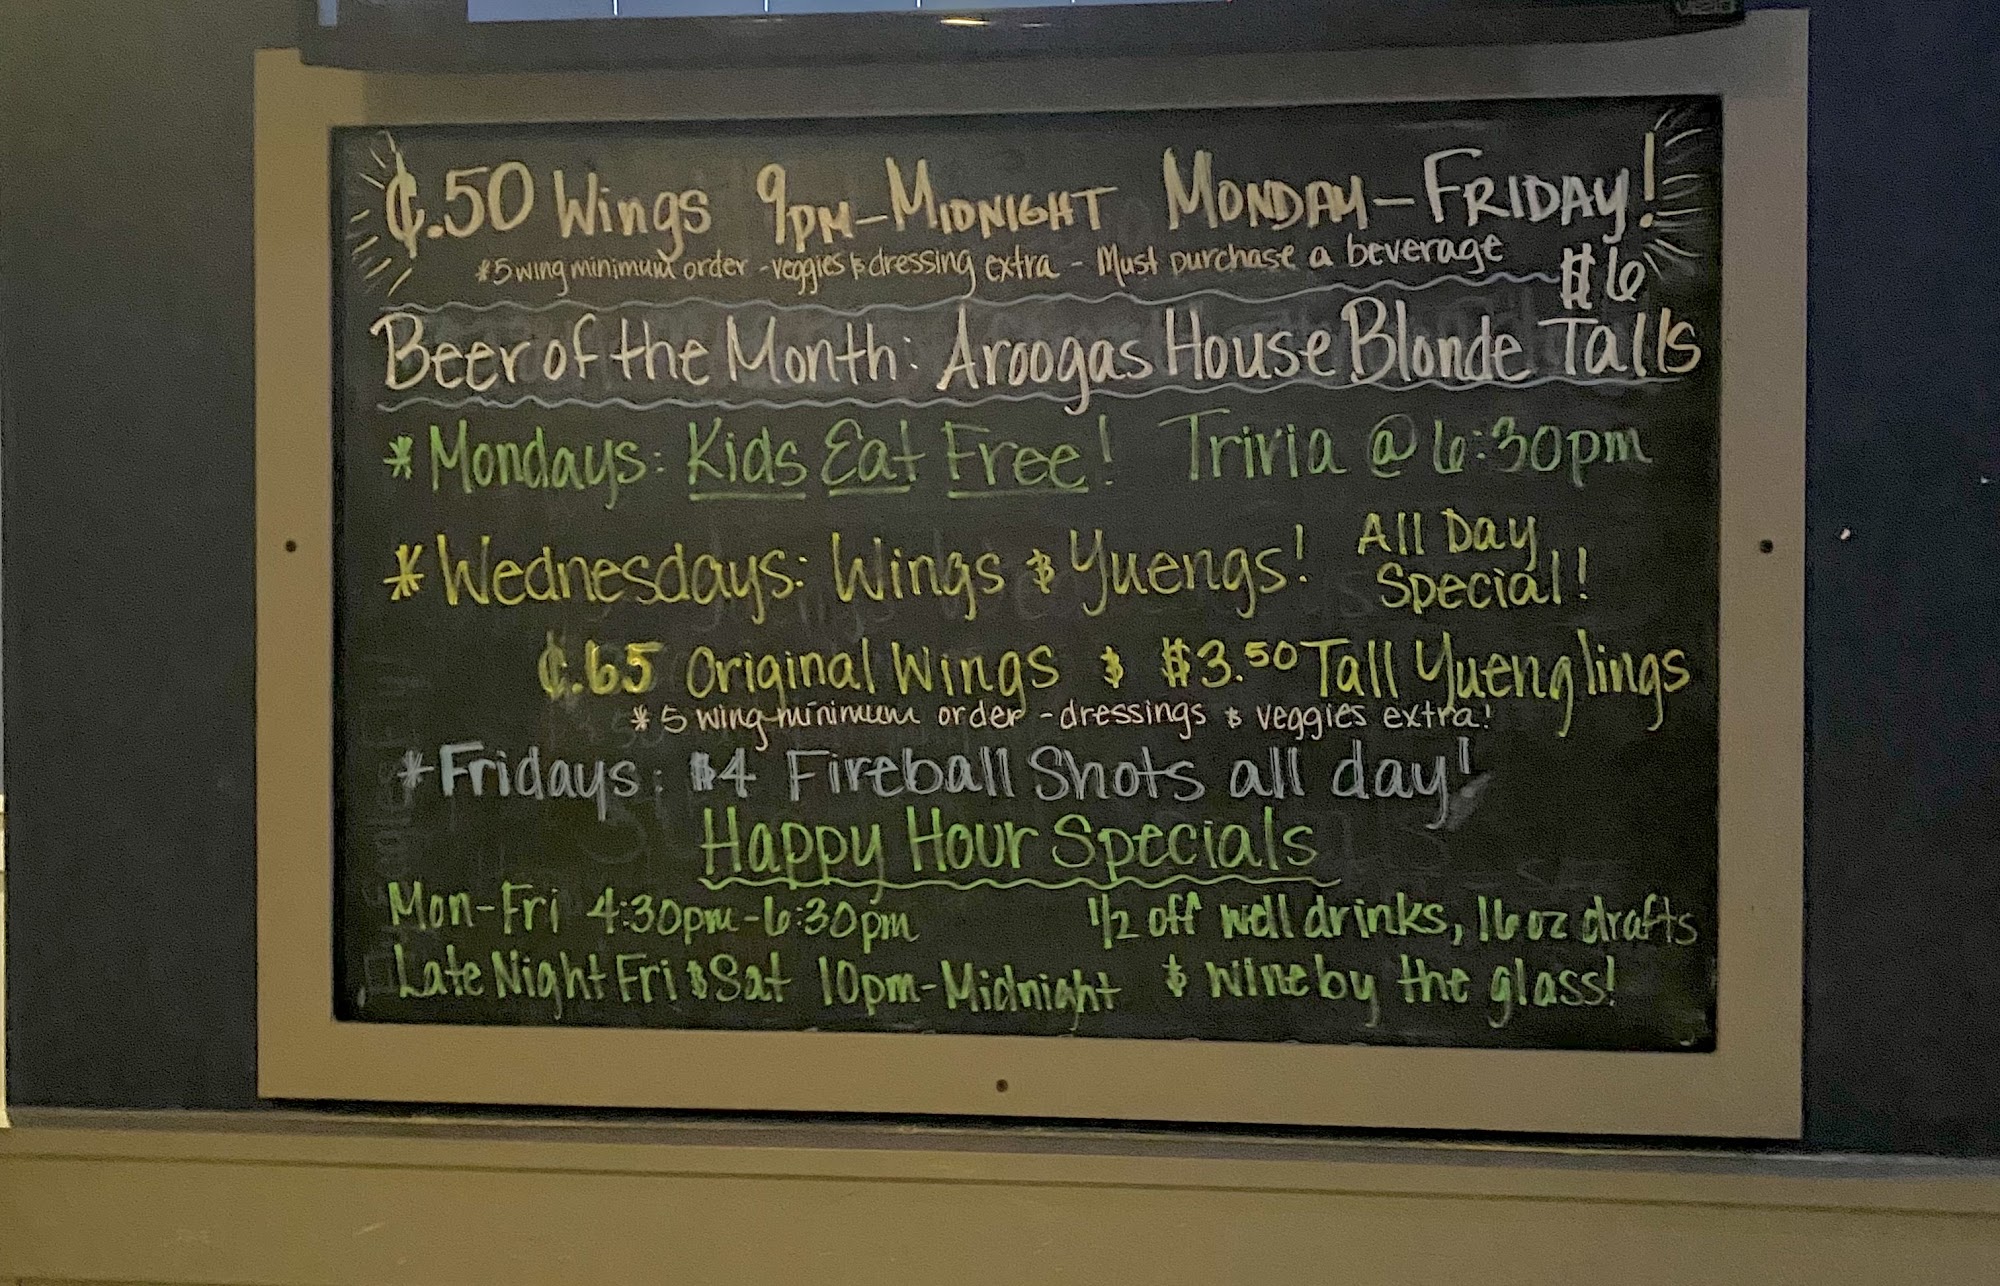 ¢.50 Wings 9pm-Midnight Monday-Friday!
*5 wing minimum order - veggies & dressing extra - Must purchase a beverage
$6
Beer of the Month: Aroogas House Blonde Talls
*Mondays: Kids Eat Free! Trivia @ 6:30pm
*Wednesdays: Wings & Yuengs! All Day
Special!
¢.65 Original Wings & $3.50 Tall Yuenglings
*5 wing minimum order - dressings & veggies extra!
*Fridays: $4 Fireball Shots all day!
Happy Hour Specials
Mon-Fri 4:30pm-6:30pm 1/2 off well drinks, 16oz drafts
Late Night Fri & Sat 10pm-Midnight & wine by the glass!